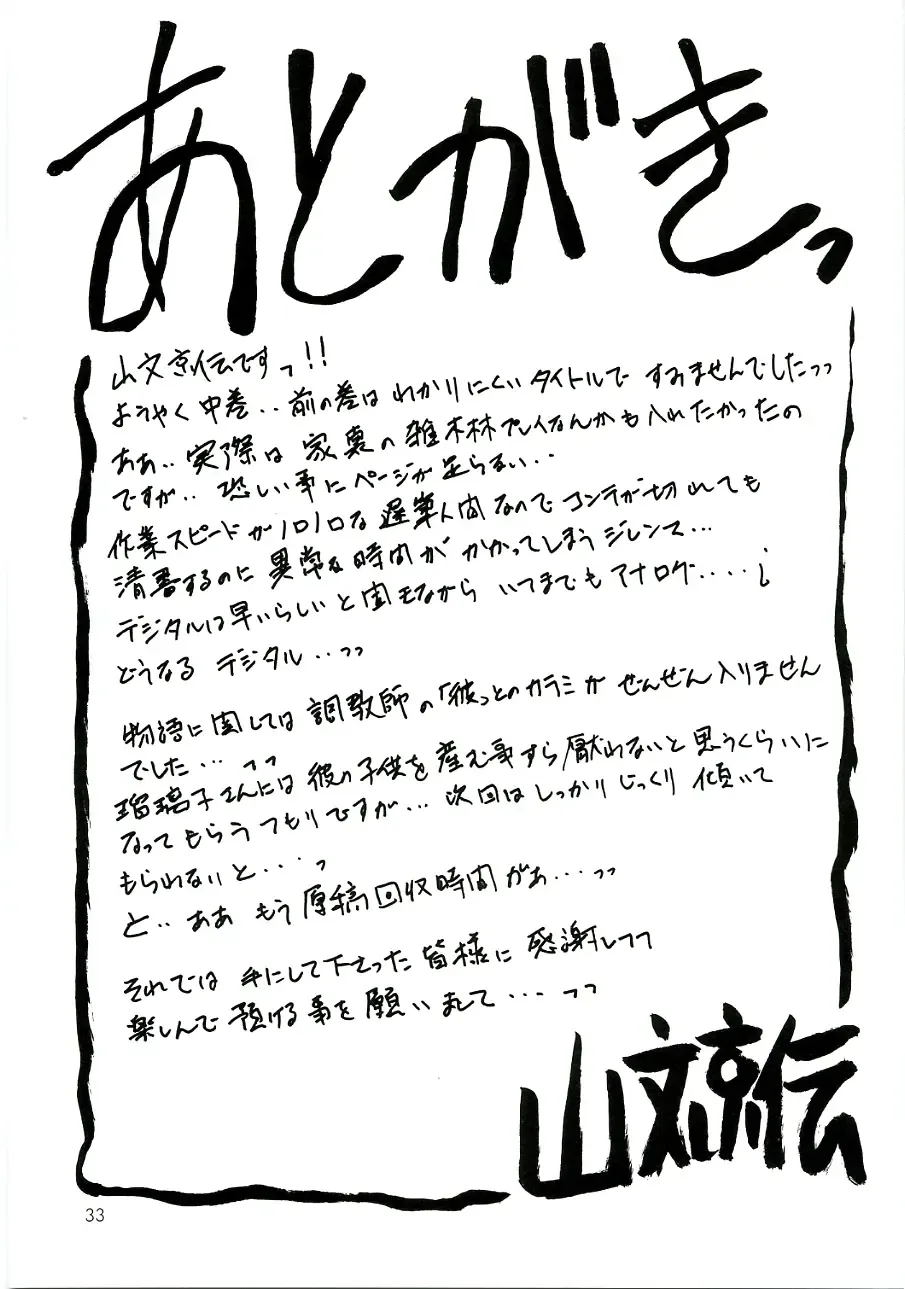 あとがきっ
山文京伝ですっ!!
ようやく中巻‥前の巻はわかりにくいタイトルですみませんでしたっっ
ああ‥実際は家裏の雑木林プレイなんかも入れたかったの
ですが‥恐しい事にページが足らない‥
作業スピードがノロノロな遅筆人間なのでコンテが切れても
清書するのに異常な時間がかかってしまうジレンマ…
デジタルは早いらしいと聞きながらいまでもアナログ‥‥
どうなるデジタル‥っっ
物語に関しては調教師の「彼」とのカラミがぜんぜん入りません
でした…っっ
瑠璃子さんには彼の子供を産む事すら厭わないと思うくらいに
なってもらうつもりですが…次回はしっかりじっくり傾いて
もらわないと…っ
と‥ああもう原稿回収時間がぁ…っっ
それでは手にして下さった皆様に感謝しつつ
楽しんで頂ける事を願いまして…っっ
山文京伝
33